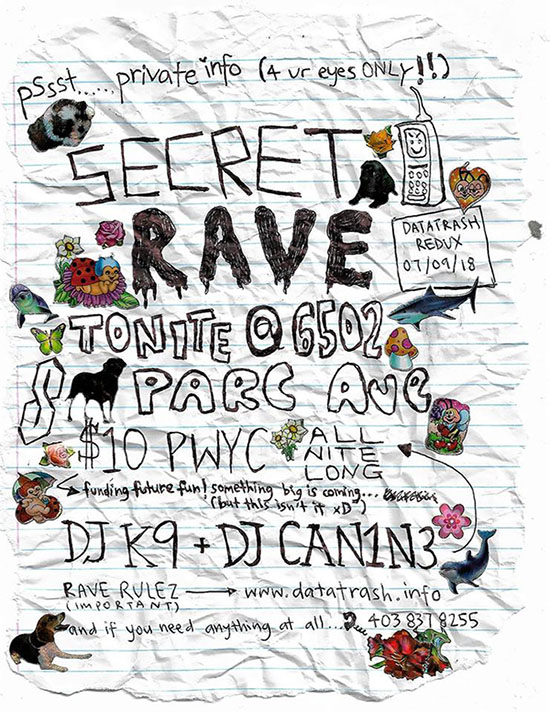 pSsst......private info (4 ur eyes ONLY!!)
SECRET
RAVE
DATATRASH
REDUX
07/09/18
TONITE @ 6502
PARC AVE
$10 PWYC
ALL
NITE
LONG
funding future fun! something big is coming...
(but this isn't it xD")
DJ K9 + DJ CAN1N3
RAVE RULEZ → www.datatrash.info
(IMPORTANT)
and if you need anything at all... 403 837 8255